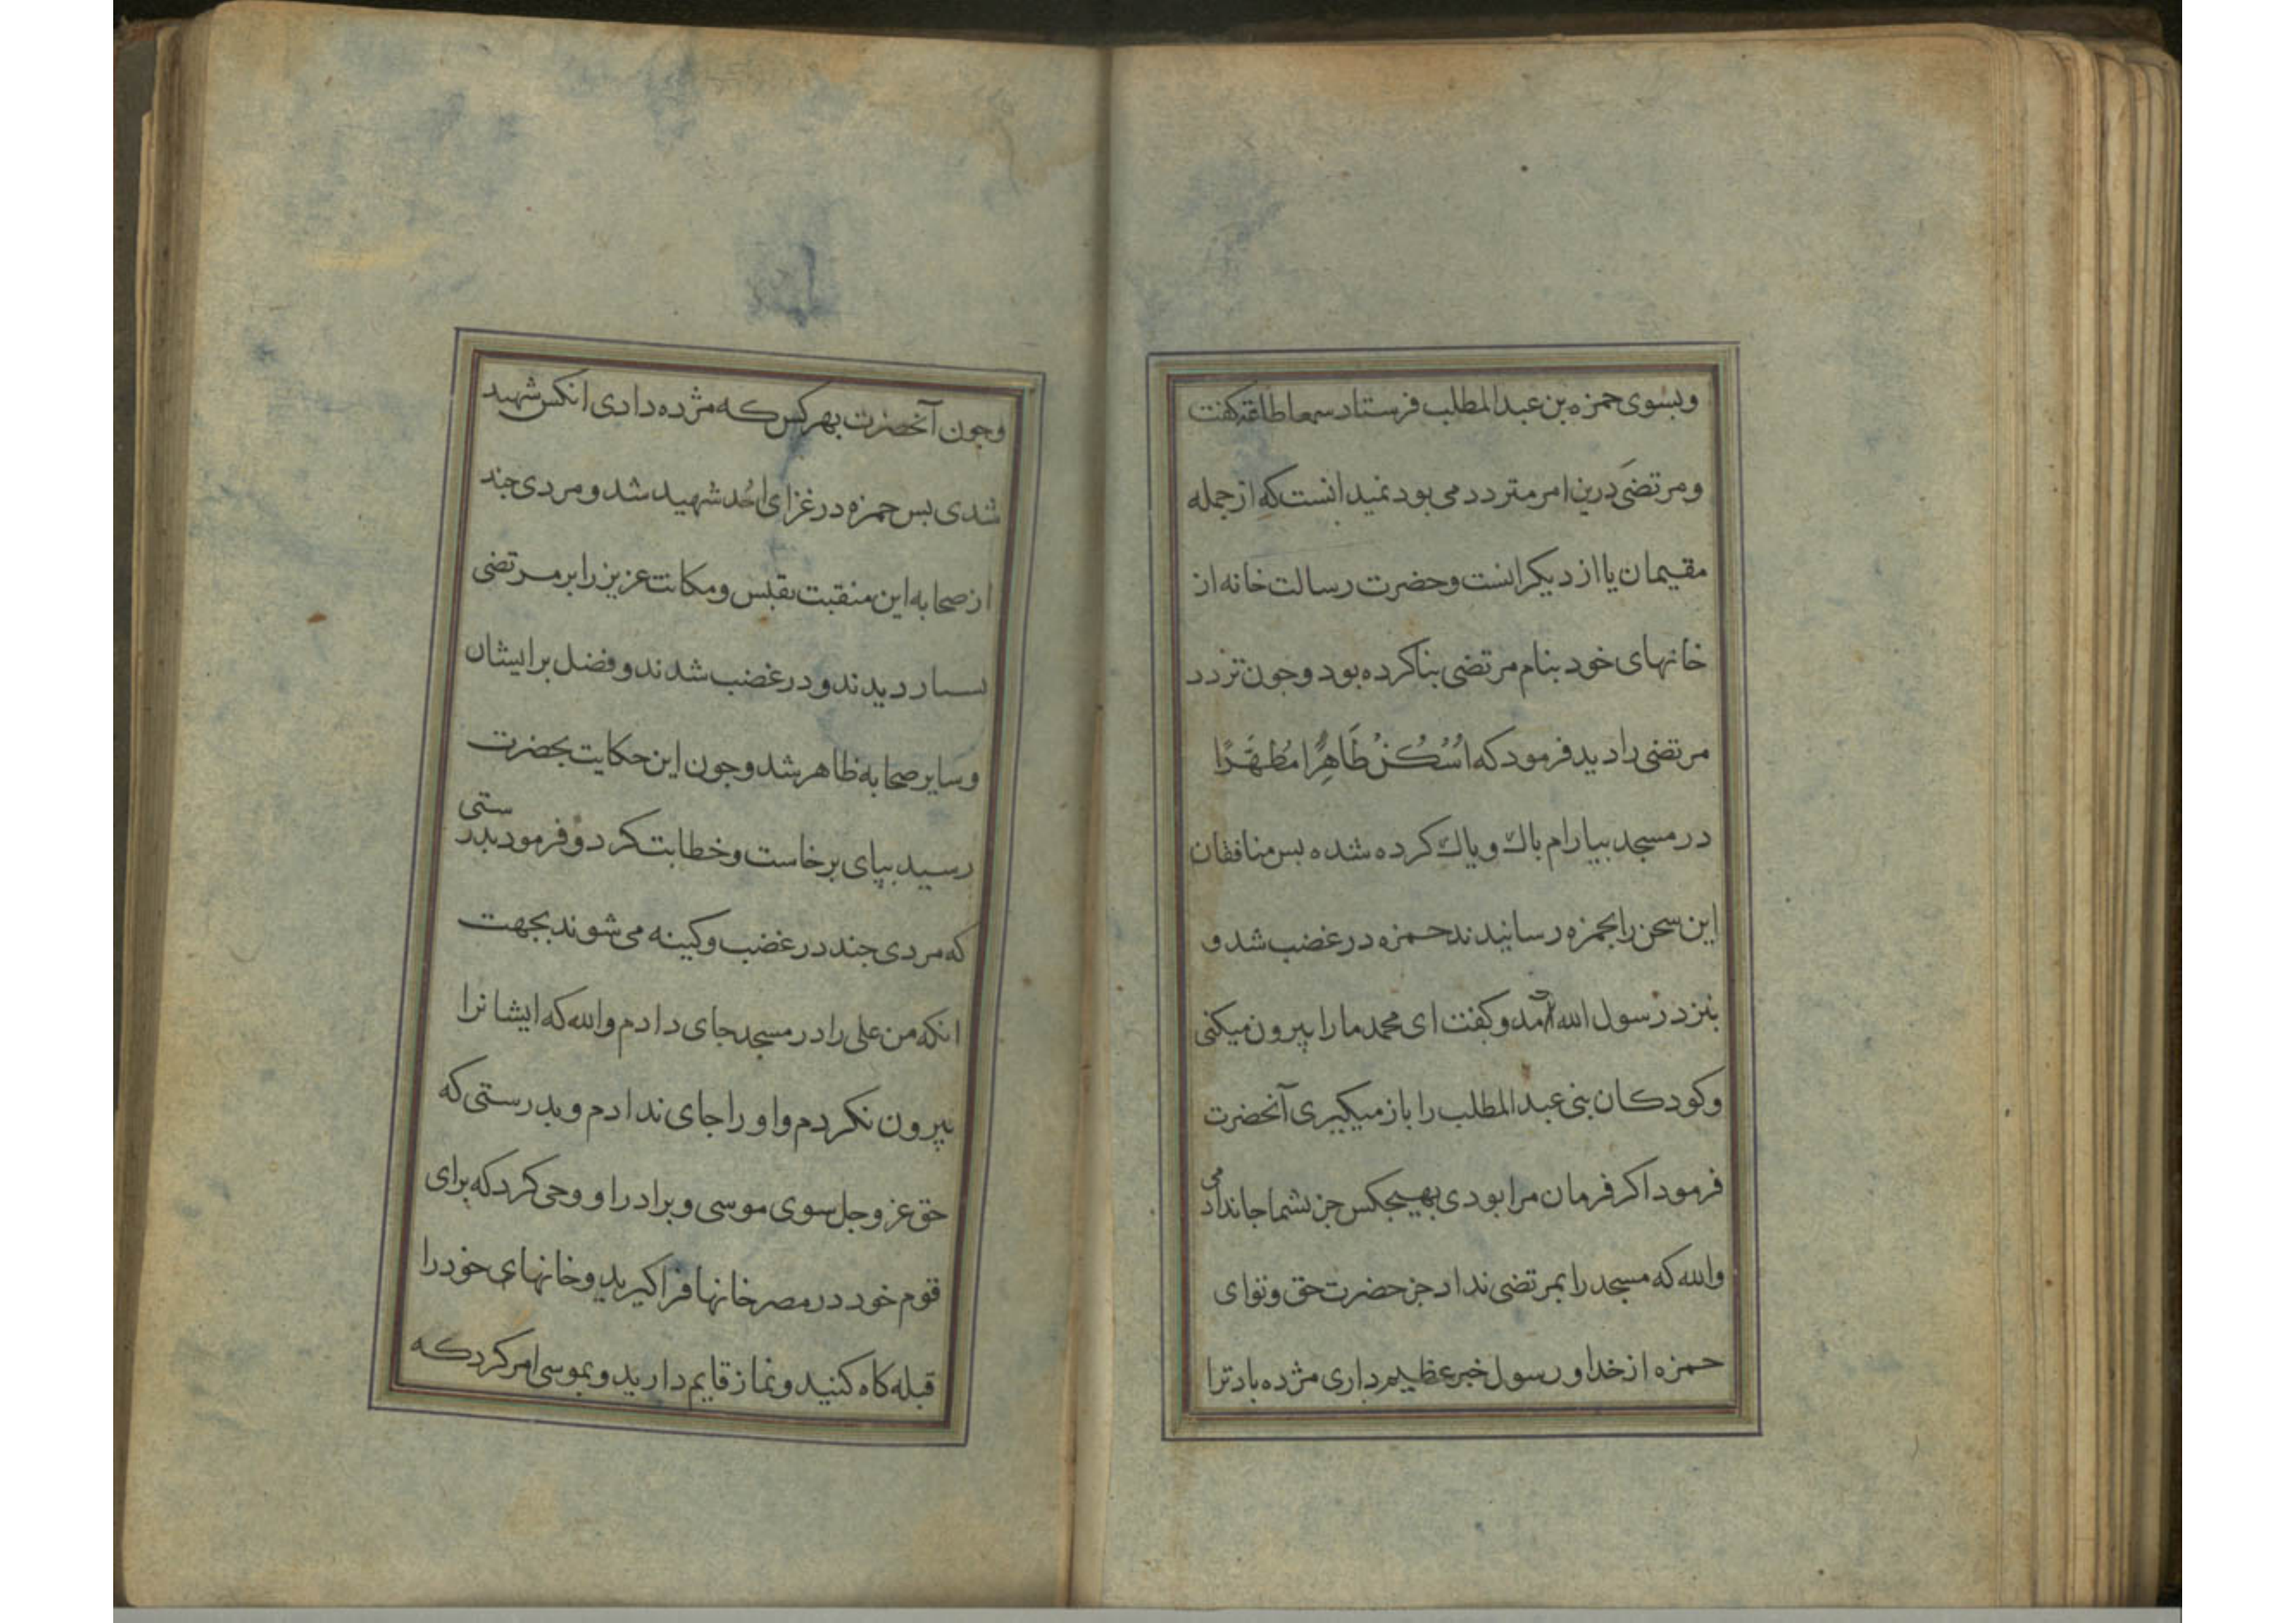 وبسوی حمزه بن عبدالمطلب فرستاد سمعا طاعة کفت
و مرتضی درین امر متردد می بود نمیدانست که از جمله
مقیمان یا از دیکرانست و حضرت رسالت خانه از
خانهای خود بنام مرتضی بنا کرده بود و جون تردد
مرتضی را دید فرمود که اُسْكُنْ طَاهِرًا مُطَهَّرًا
در مسجد بیارام باك و پاك کرده شده بس منافقان
این سخن را بحمزه رسانیدند حمزه در غضب شد و
بنزد رسول الله آمد و کفت ای محمد ما را بیرون میکنی
و کودکان بنی عبدالمطلب را باز میکیری آنحضرت
فرمود اکر فرمان مرا بودی بهیجکس جز بشما جا ندادمی
والله که مسجد را بمرتضی نداد جز حضرت حق و توای
حمزه از خدا و رسول خبر عظیم داری مژده باد ترا
وجون آنحضرت بهر کس که مژده دادی انکس شهید
شدی بس حمزه در غزای اُحُد شهید شد و مردی جند
از صحابه این منقبت نفیس و مکانت عزیز را بر مرتضی
بسیار دیدند و در غضب شدند و فضل بر ایشان
و سایر صحابه ظاهر شد و جون این حکایت بحضرت
رسید بپای برخاست و خطابت کرد و فرمود بدرستی
که مردی جند در غضب و کینه می شوند بجهت
انکه من علی را در مسجد جای دادم والله که ایشانرا
بیرون نکردم و او را جای ندادم و بدرستی که
حق عز و جل سوی موسی و برادر او وحی کرد که برای
قوم خود در مصر خانها فرا کیرید و خانهای خود را
قبله کاه کنید و نماز قایم دارید و بموسی امر کرد که